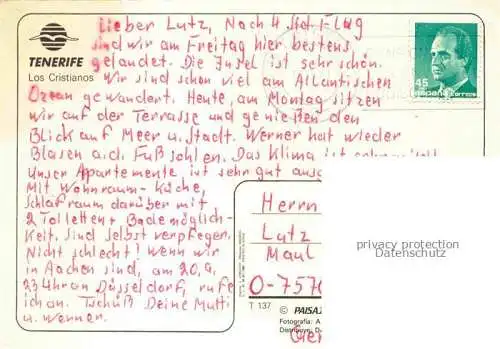 Lieber Lutz, Nach 4 Std. Flug
sind wir am Freitag hier bestens
gelandet. Die Insel ist sehr schön.
Wir sind schon viel am Atlantischen
Ozean gewandert. Heute, am Montag sitzen
wir auf der Terrasse und genießen den
Blick auf Meer u. Stadt. Werner hat wieder
Blasen a.d. Fußsohlen. Das Klima ist
Unser Appartemente ist sehr gut
Mit Wohnraum-Küche,
Schlafraum darüber mit
2 Toiletten + Bademöglich-
keit. Sind selbst verpfleger.
Nicht schlecht! Wenn wir
in Aachen sind, am 20.9.
23 Uhr an Düsseldorf, rufe
ich an. Tschüß Deine Mutti
u. Werner.
TENERIFE
Los Cristianos
45
ESPAÑA CORREOS
Herrn
Lutz
Maul
O-7570
privacy protection
Datenschutz
T 137
© PAISA
Fotografía: A
Distribuye: D